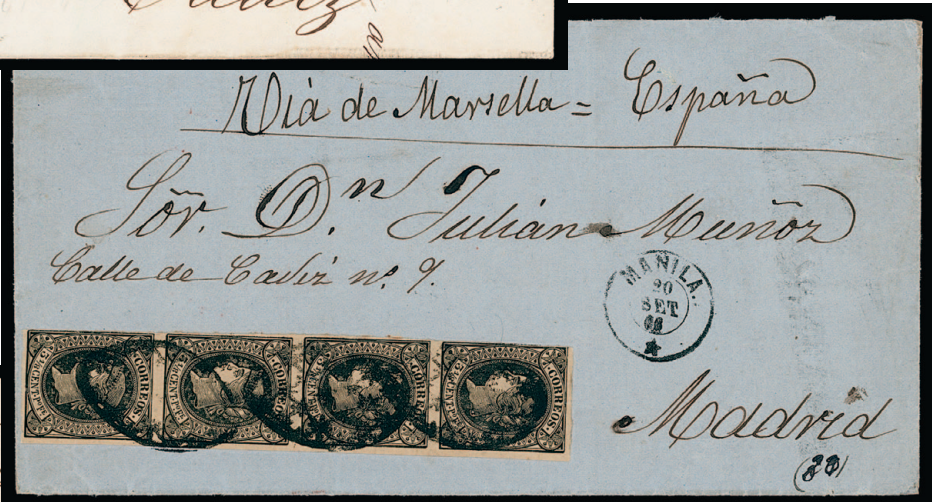 Cadiz
Viá de Marsella = España
Sõr. Dn Julián Muñoz
Calle de Cadiz nº. 9.
MANILA.
20
SET
CORREOS
CORREOS
CORREOS
CORREOS
Madrid